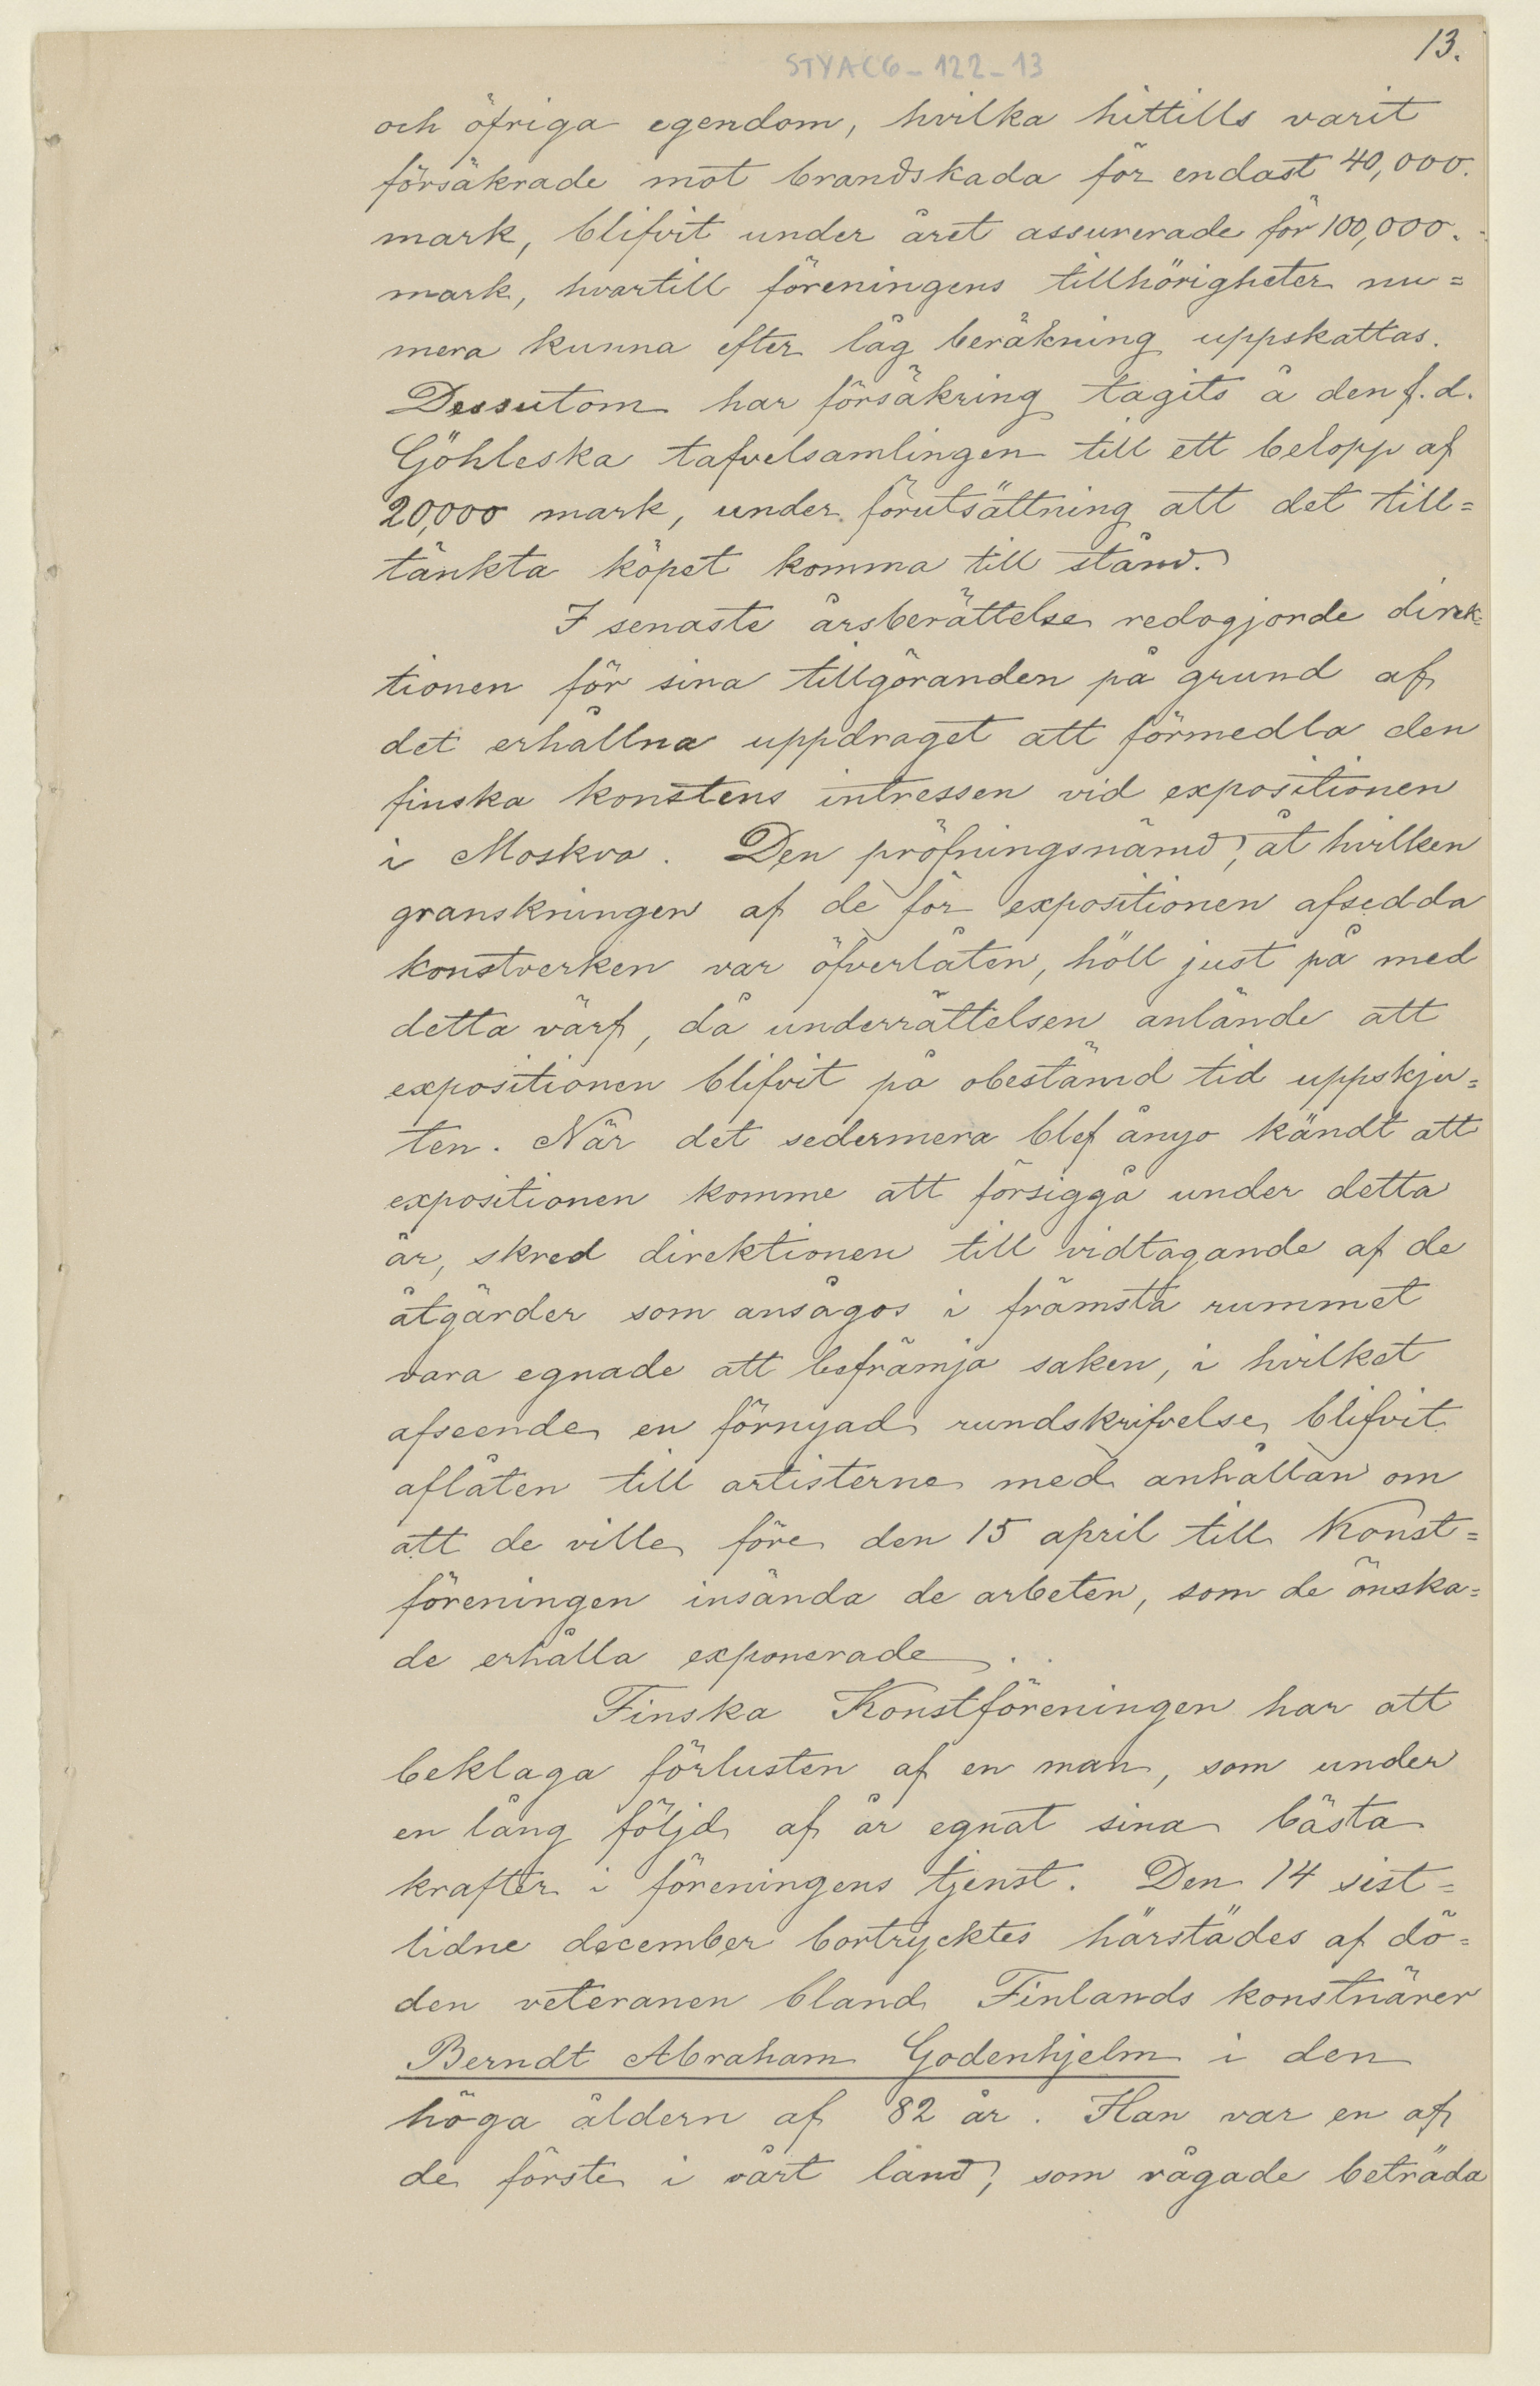 13.
STYAC6-122-13
och öfriga egendom, hvilka hittills varit
försäkrade mot brandskada för endast 40,000.
mark, blifvit under året assurerade för 100,000.
mark, hvartill föreningens tillhörigheter nu=
mera kunna efter låg beräkning uppskattas.
Dessutom har försäkring tagits å den f.d.
Göhleska tafvelsamlingen till ett belopp af
20,000 mark, under förutsättning att det till=
tänkta köpet komma till stånd.
I senaste årsberättelse redogjorde direk=
tionen för sina tillgöranden på grund af
det erhållna uppdraget att förmedla den
finska konstens intressen vid expositionen
i Moskva. Den pröfningsnämd, åt hvilken
granskningen af de för expositionen afsedda
konstverken var öfverlåten, höll just på med
detta värf, då underrättelsen anlände att
expositionen blifvit på obestämd tid uppskju=
ten. När det sedermera blef ånyo kändt att
expositionen komme att försiggå under detta
år, skred direktionen till vidtagande af de
åtgärder som ansågos i främsta rummet
vara egnade att befrämja saken, i hvilket
afseende en förnyad rundskrifvelse blifvit
aflåten till artisterne med anhållan om
att de ville före den 15 april till Konst=
föreningen insända de arbeten, som de önska=
de erhålla exponerade.
Finska Konstföreningen har att
beklaga förlusten af en man, som under
en lång följd af år egnat sina bästa
krafter i föreningens tjenst. Den 14 sist=
lidne december bortrycktes härstädes af dö=
den veteranen bland Finlands konstnärer
Berndt Abraham Godenhjelm i den
höga åldern af 82 år. Han var en af
de förste i vårt land, som vågade beträda